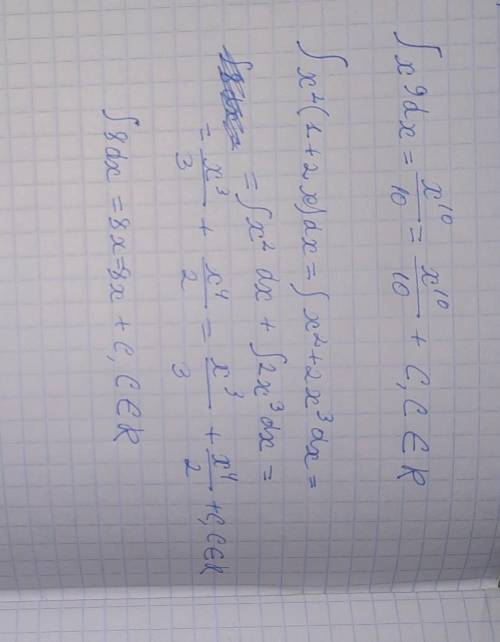 ∫x⁹dx = x¹⁰/10 = x¹⁰/10 + C, C∈R
∫x²(1+2x)dx = ∫x²+2x³dx =
= ∫x²dx + ∫2x³dx =
= x³/3 + x⁴/2 = x³/3 + x⁴/2 + C, C∈R
∫8dx = 8x = 8x + C, C∈R